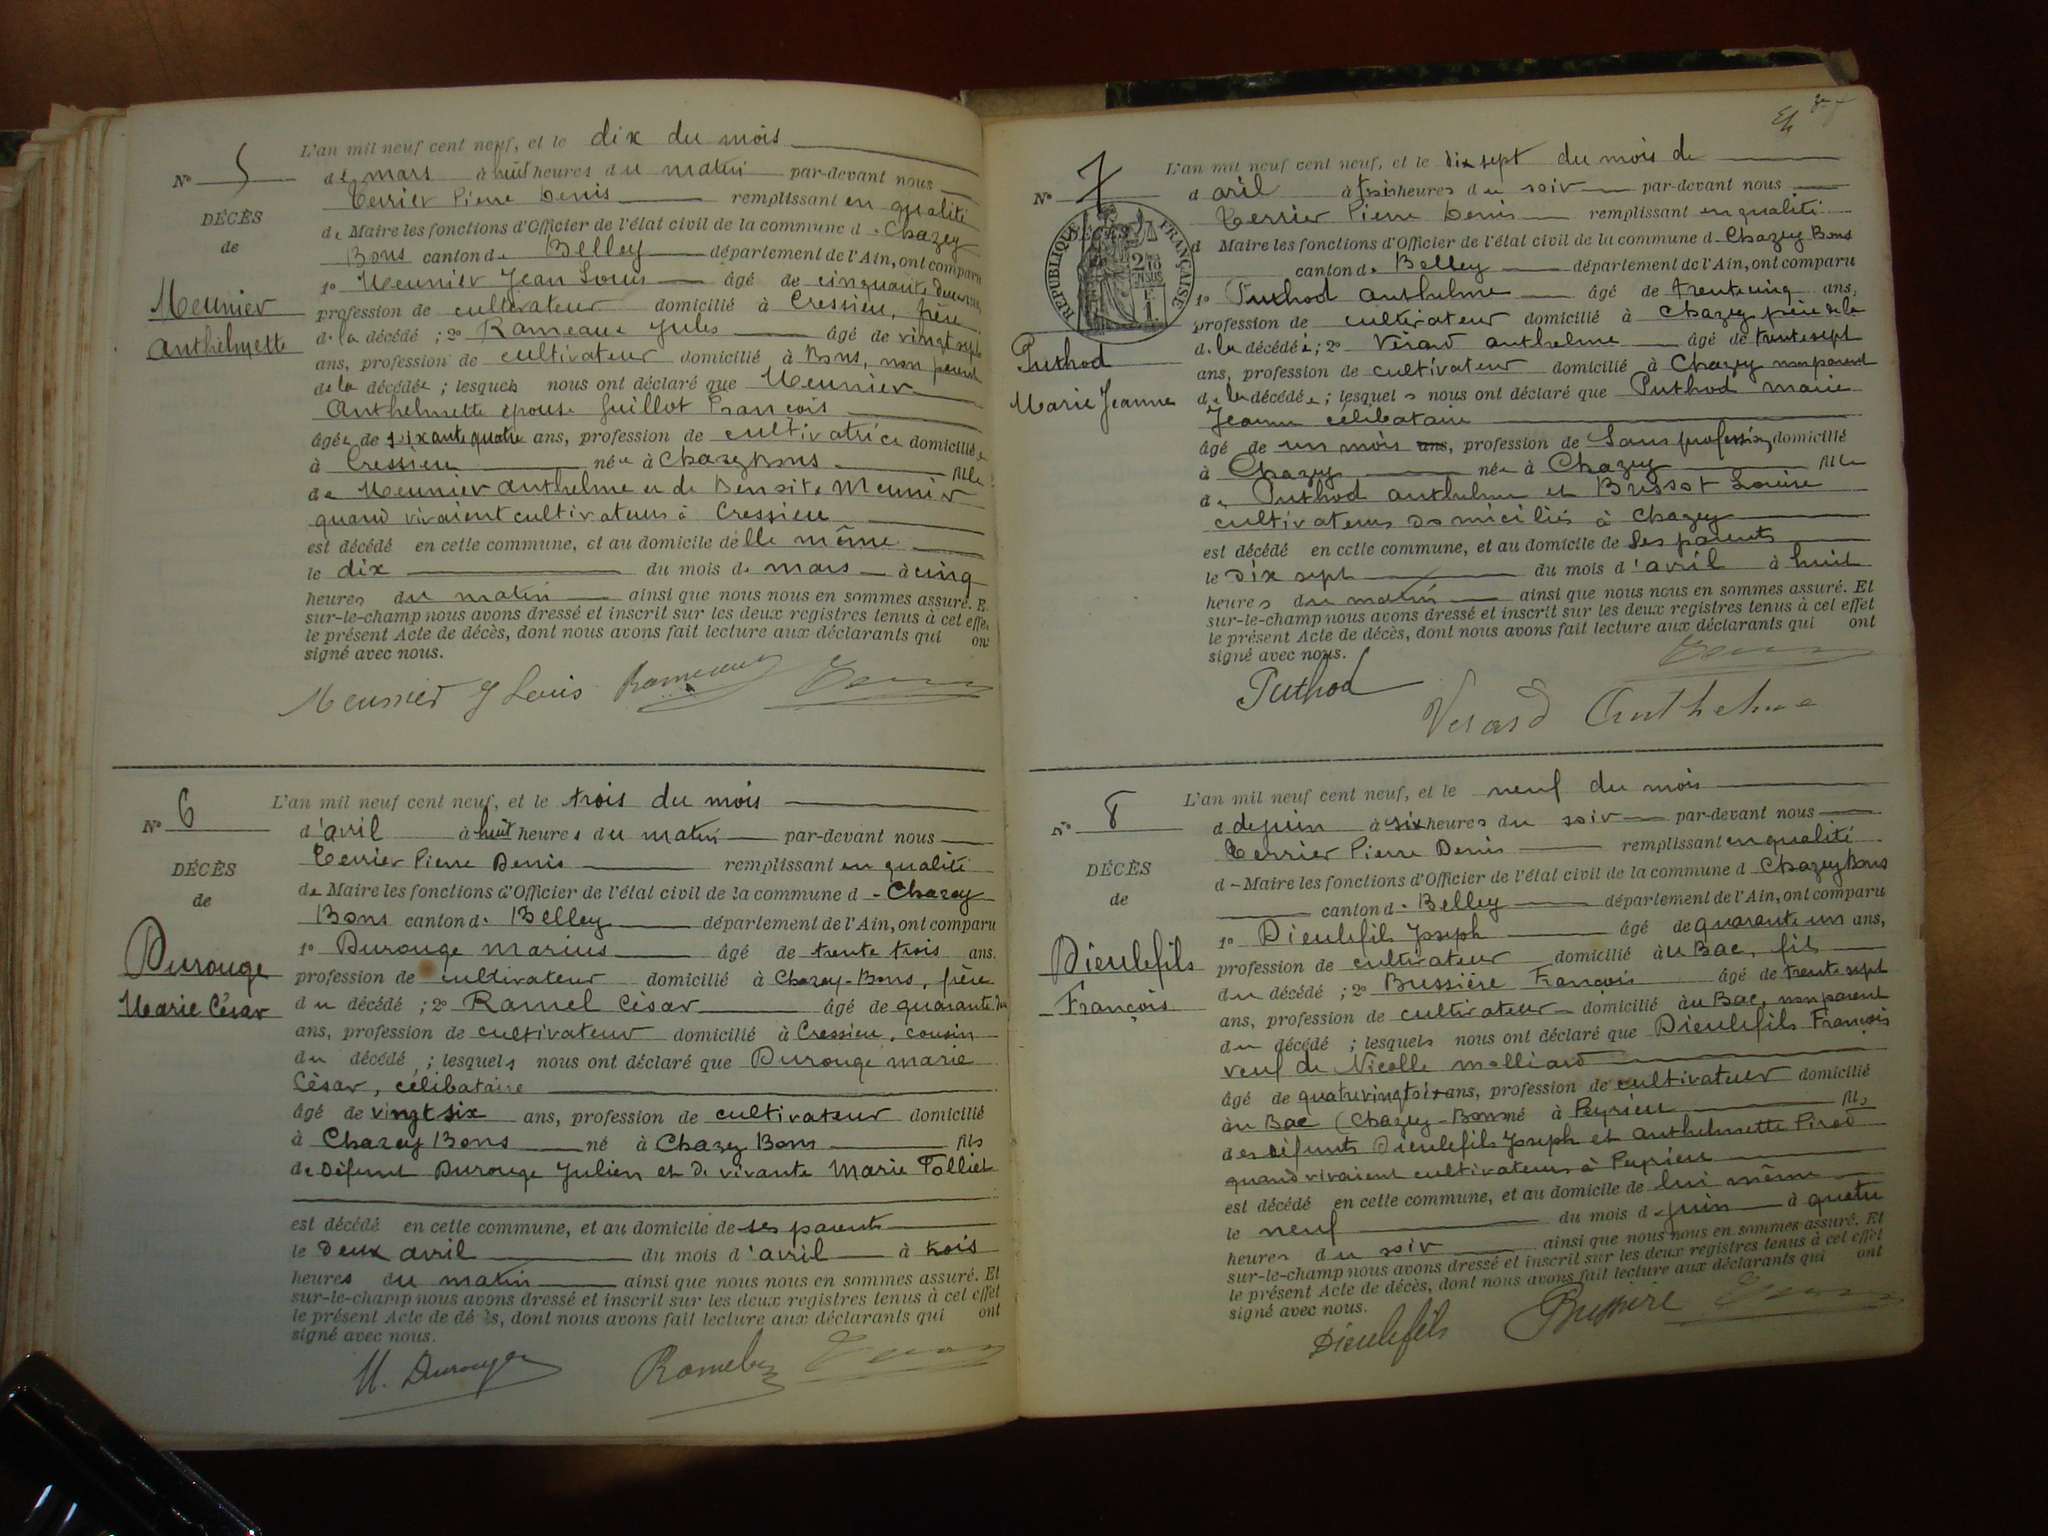 L'an mil neuf cent neuf, et le dix du mois
N° 5
de mars à huit heures du matin par-devant nous
Terrier Pierre Denis remplissant en qualité
DÉCÈS
de Maire les fonctions d'Officier de l'état civil de la commune d. Chazey
de
Bons canton de Belley département de l'Ain, ont comparu
1° Meunier Jean Louis âgé de cinquante deux ans
Meunier
profession de cultivateur domicilié à Cressieu, frère
Anthelmette
de la décédé ; 2° Rameaux Jules âgé de vingt sept
ans, profession de cultivateur domicilié à Bons, non parent
de la décédée ; lesquels nous ont déclaré que Meunier
Anthelmette épouse Guillot François
âgée de soixante quatre ans, profession de cultivatrice domiciliée
à Cressieu née à Chazey Bons fille
de Meunier Anthelme et de Benoite Meunier
quand vivaient cultivateurs à Cressieu
est décédé en cette commune, et au domicile delle même
le dix du mois de mars à cinq
heures du matin ainsi que nous nous en sommes assuré. E
sur-le-champ nous avons dressé et inscrit sur les deux registres tenus à cet effe
le présent Acte de décès, dont nous avons fait lecture aux déclarants qui on
signé avec nous.
Meunier J Louis Rameaux
L'an mil neuf cent neuf, et le trois du mois
N° 6
d'avril à huit heures du matin par-devant nous
Terrier Pierre Denis remplissant en qualité
DÉCÈS
de Maire les fonctions d'Officier de l'état civil de la commune d. Chazey
de
Bons canton de Belley département de l'Ain, ont comparu
1° Durouge Marius âgé de trente trois ans.
Durouge
profession de cultivateur domicilié à Chazey-Bons, frère
Marie César
du décédé ; 2° Ramel César âgé de quarante
ans, profession de cultivateur domicilié à Cressieu, cousin
du décédé ; lesquels nous ont déclaré que Durouge Marie
César, célibataire
âgé de vingt six ans, profession de cultivateur domicilié
à Chazey Bons né à Chazey Bons fils
de Défunt Durouge Julien et de vivante Marie Folliet
est décédé en cette commune, et au domicile de ses parents
le Deux avril du mois d'avril à trois
heures du matin ainsi que nous nous en sommes assuré. Et
sur-le-champ nous avons dressé et inscrit sur les deux registres tenus à cet effet
le présent Acte de décès, dont nous avons fait lecture aux déclarants qui ont
signé avec nous.
M. Durouge
L'an mil neuf cent neuf, et le dix sept du mois de
N° 7
d avril à trois heures du soir par-devant nous
Terrier Pierre Denis remplissant en qualité
DÉCÈS
RÉPUBLIQUE FRANÇAISE
d Maire les fonctions d'Officier de l'état civil de la commune d Chazey Bons
canton de Belley département de l'Ain, ont comparu
1° Puthod Anthelme âgé de trente cinq ans,
profession de cultivateur domicilié à Chazey père de la
Puthod
de la décédée ; 2° Verard Anthelme âgé de trente sept
ans, profession de cultivateur domicilié à Chazey non parent
Marie Jeanne
de la décédée ; lesquels nous ont déclaré que Puthod Marie
Jeanne célibataire
âgé de un mois ans, profession de Sans profession domicilié
à Chazey née à Chazey fille
de Puthod Anthelme et Brissot Louise
cultivateurs domiciliés à Chazey
est décédé en cette commune, et au domicile de ses parents
le dix sept du mois d'avril à huit
heures du matin ainsi que nous nous en sommes assuré. Et
sur-le-champ nous avons dressé et inscrit sur les deux registres tenus à cet effet
le présent Acte de décès, dont nous avons fait lecture aux déclarants qui ont
signé avec nous.
Puthod
Verard Anthelme
L'an mil neuf cent neuf, et le neuf du mois
N° 8
d de juin à six heures du soir par-devant nous
Terrier Pierre Denis remplissant en qualité
DÉCÈS
d Maire les fonctions d'Officier de l'état civil de la commune d Chazey Bons
de
canton de Belley département de l'Ain, ont comparu
1° Dieulefils Joseph âgé de quarante un ans,
Dieulefils
profession de cultivateur domicilié àu Bac, fils
François
du décédé ; 2° Bussière François âgé de trente sept
ans, profession de cultivateur domicilié àu Bac, non parent
du décédé ; lesquels nous ont déclaré que Dieulefils François
veuf de Nicolle Molliard
âgé de quatre vingt six ans, profession de cultivateur domicilié
àu Bac (Chazey-Bons né à Peyrieu fils
des défunts Dieulefils Joseph et Anthelmette Pirod
quand vivaient cultivateurs à Peyrieu
est décédé en cette commune, et au domicile de lui même
le neuf du mois d juin à quatre
heures du soir ainsi que nous nous en sommes assuré. Et
sur-le-champ nous avons dressé et inscrit sur les deux registres tenus à cet effet
le présent Acte de décès, dont nous avons fait lecture aux déclarants qui ont
signé avec nous.
Dieulefils Bussière